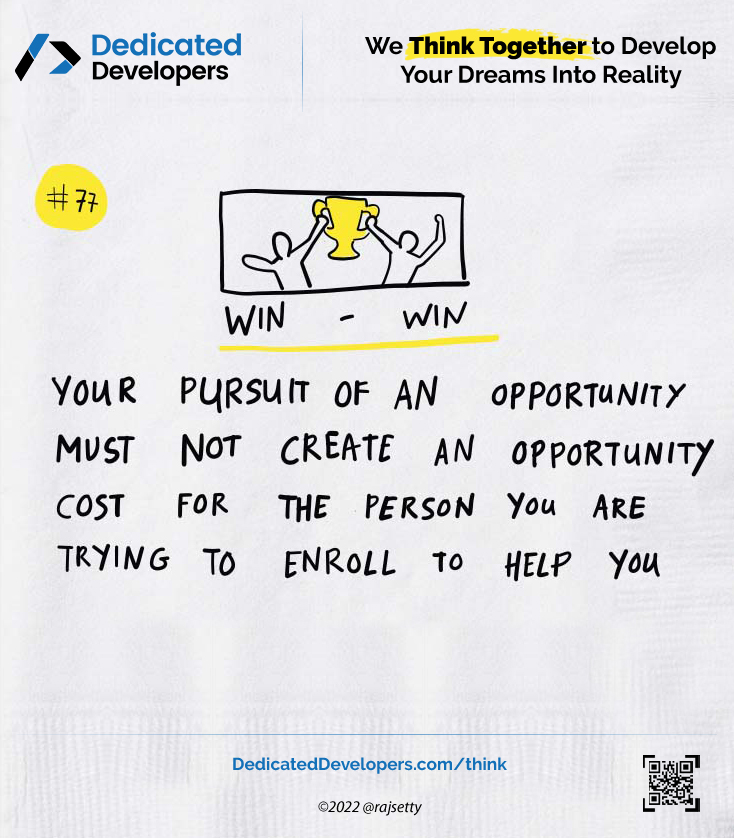 Dedicated
Developers
We Think Together to Develop
Your Dreams Into Reality
#77
WIN - WIN
YOUR PURSUIT OF AN OPPORTUNITY
MUST NOT CREATE AN OPPORTUNITY
COST FOR THE PERSON YOU ARE
TRYING TO ENROLL TO HELP YOU
DedicatedDevelopers.com/think
©2022 @rajsetty